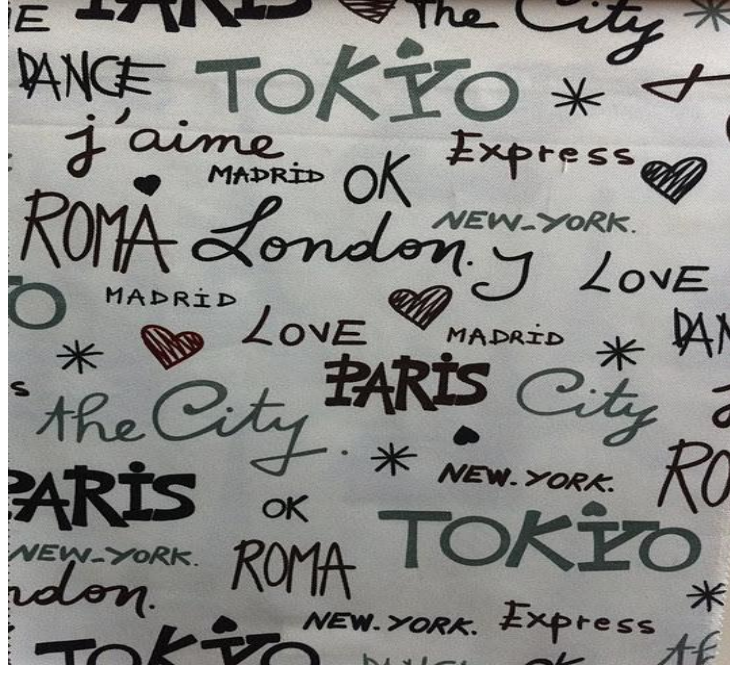 E PARIS The City
DANCE TOKYO
j'aime Express
MADRID OK
ROMA London. NEW-YORK.
y LOVE
O MADRID
LOVE MADRID DAN
PARIS City
s the City.
NEW-YORK. RO
PARIS OK TOKYO
NEW-YORK. ROMA
ndon.
NEW-YORK. Express
TOKYO DANCE OK